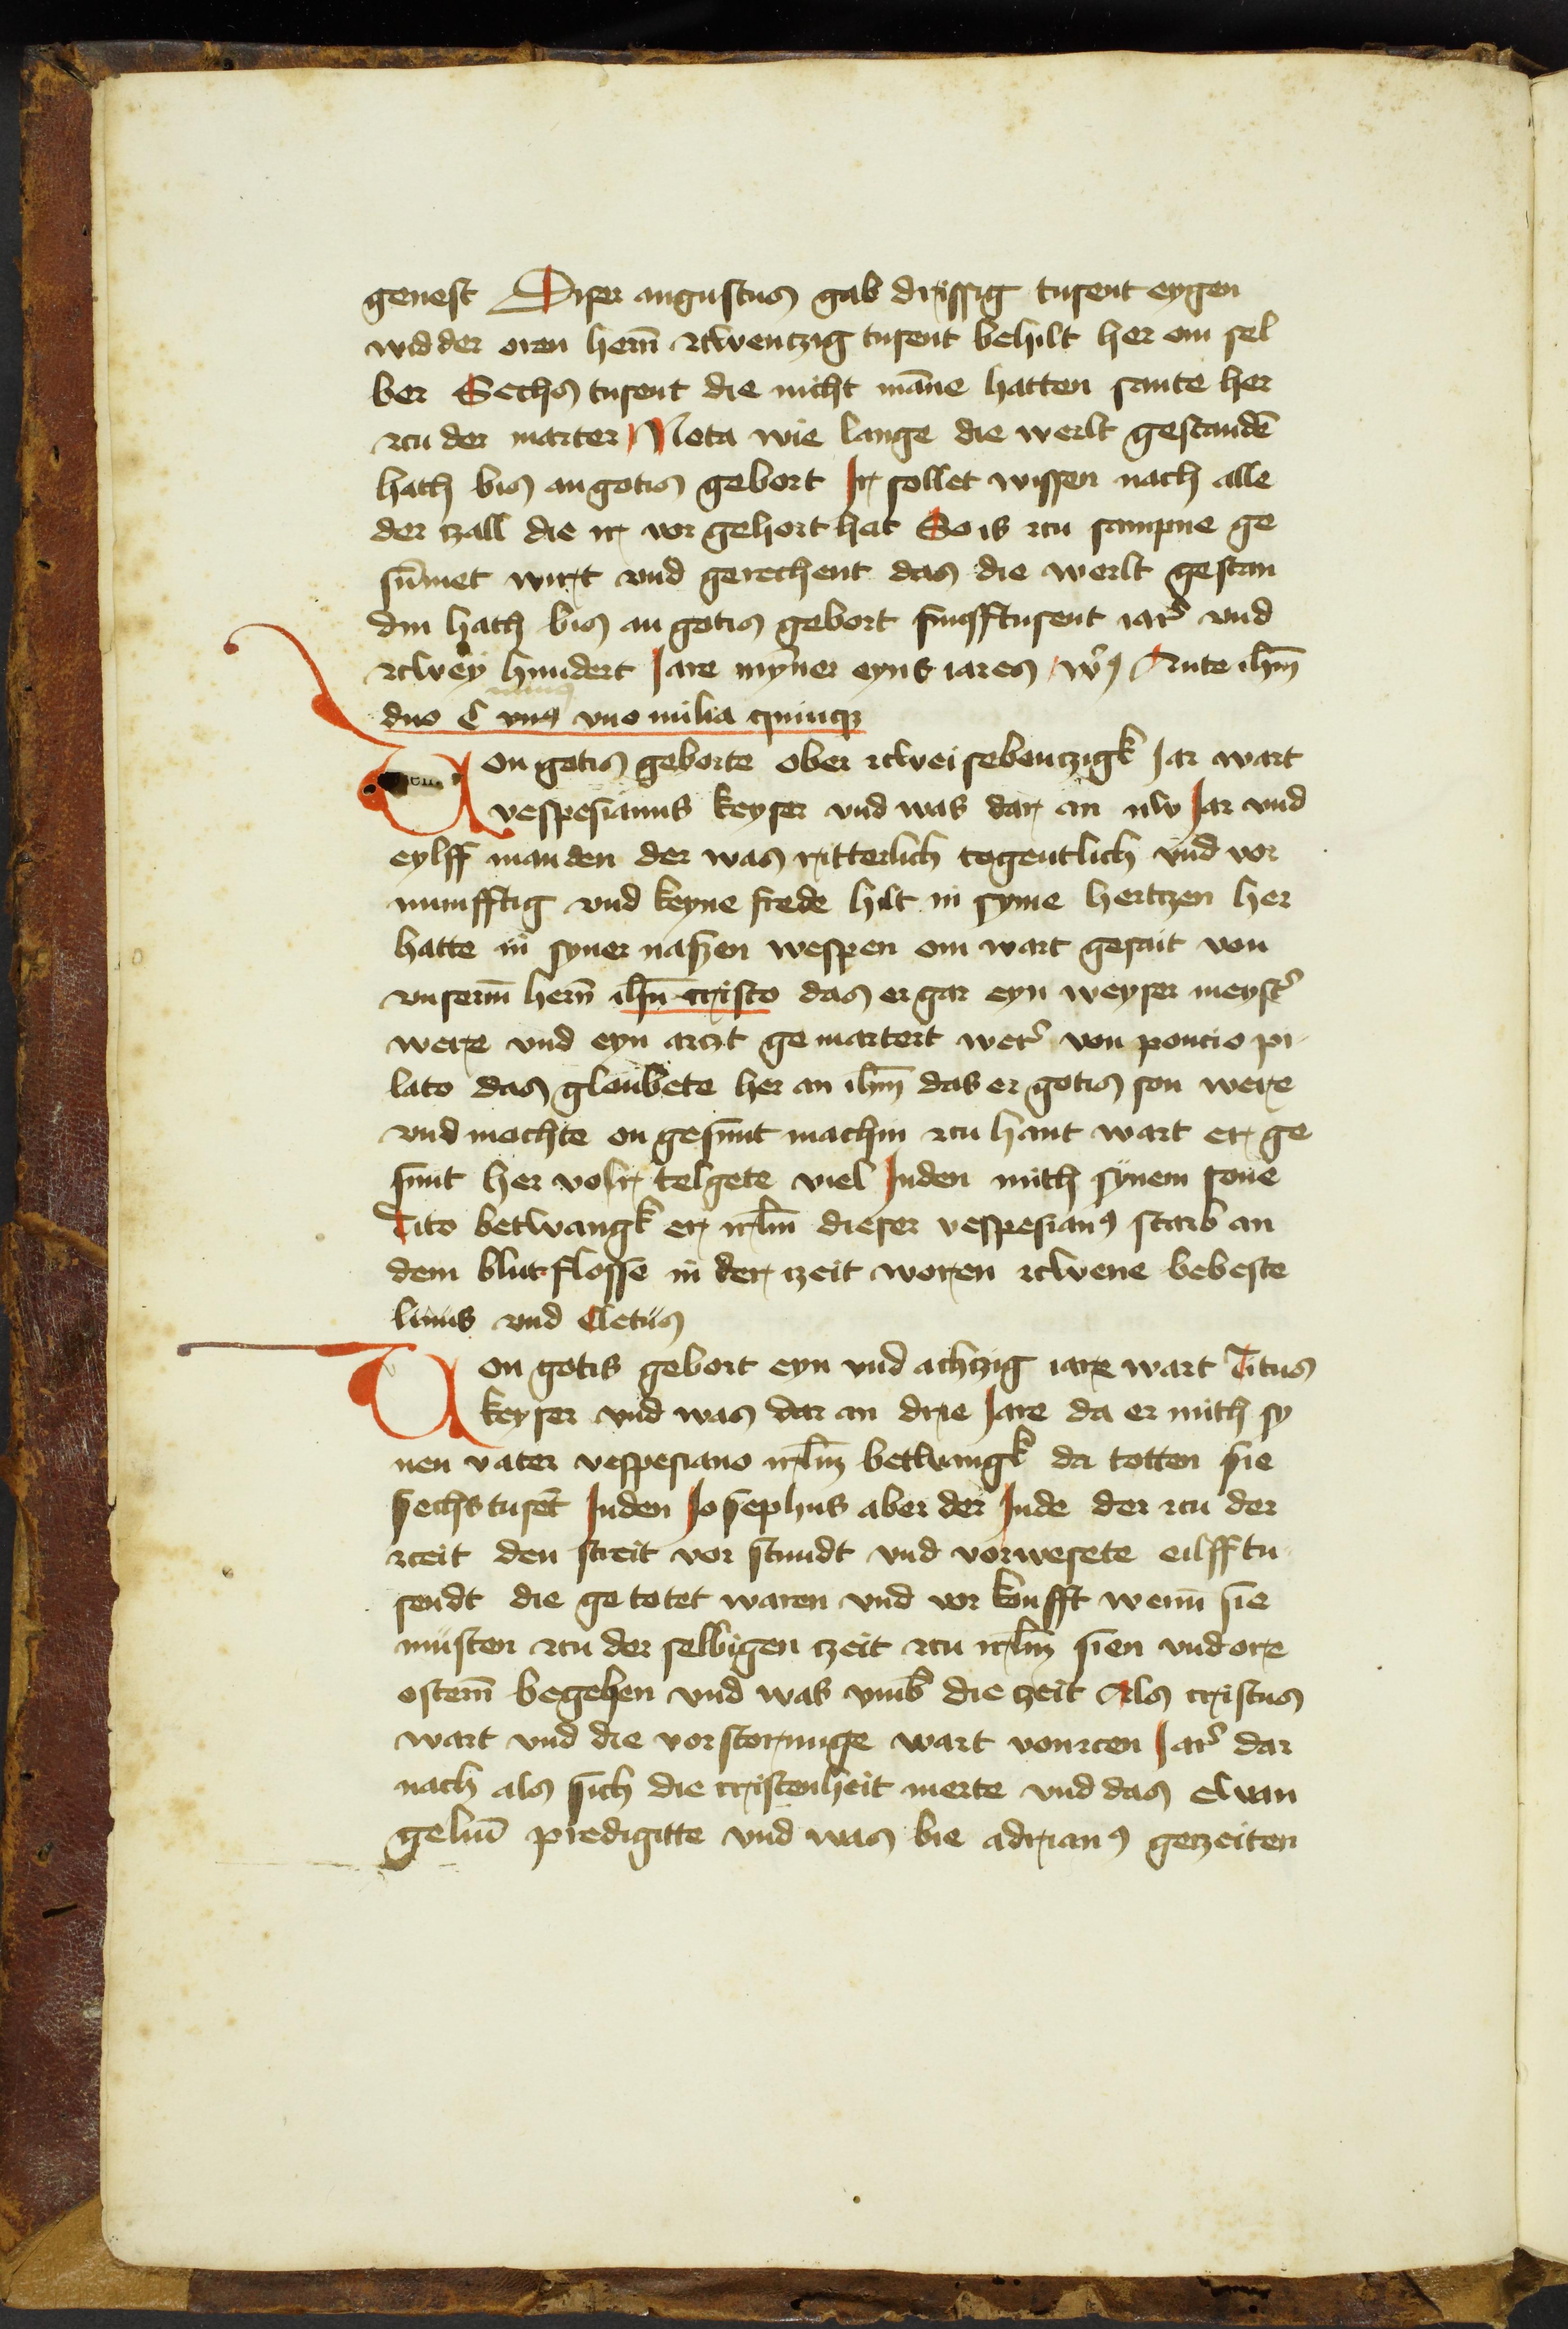 genest Diser augustus gab drissig tusent eygen
widder oren hern̄ zcwenczig tusent behilt her om sel
ber Sechs tusent die nicht man̄e hatten sante her
zcu der marter Nota wie lange die werlt gestandē
hath bis an gotis gebort Ir sollet wissen nach alle
der czall die ir vor gehort hat So is zcu sampne ge
sūmet wirt vnd gerechent das die werlt gestan
den hath bis an gotis gebort funfftusent iar̉ vnd
zcwey hundert Jare myner eyns iares Ante ihm̄
duo C vnꝰ vno milia quinqꝫ
Von gotis geborte ober zcwei sebenczigk Jar wart
vespesianus keyser vnd was dar an nw Jar vnd
eylff manden der was ritterlich togentlich vnd vor
numfftig vnd keyne frede hilt in syme hertczen her
hatte in syner naszen wespen om wart gesait von
vnserm̄ hern̄ ihū cristo das er gar eyn weyser meyst̉
were vnd eyn arczt gemartert wer̉ von poncio pi
lato das gloubete her an ihm̄ das er gotis son were
vnd mochte on gesunt machen zcu hant wart er ge
sunt her volr telgete viel Juden mith synem sone
Tito betwangk er irl̄m dieser vespesianꝰ starb an
dem blutflosse in der czeit woren zcwene bebeste
linus vnd Cletus
Von gotis gebort eyn vnd achczig iare wart Titus
keyser vnd was dar an drie Jare da er mith sy
nen vater vespesiano irl̄m betwangk da totten sie
sechstusēt Juden Josephus aber der Jude der zcu der
zceit den streit vor stundt vnd vorwesete eilfftu
sendt die getotet waren vnd vor koufft wenn̄ sie
musten zcu der selbigen czeit zcu irl̄m sien vnd ore
ostern̄ begehen vnd was vmb die czeit Als cristus
wart vnd die vorstorunge wart vonrcen Jar̉ dar
nach als sich die cristenheit merte vnd das ewan
geliū predigitte vnd was bie adrianꝰ geczeiten